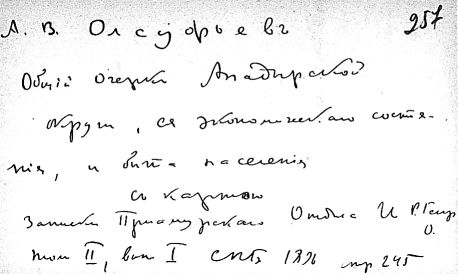 А. В. Олсуфьевъ 257
Общій очеркъ Анадырской
округи, ея экономическаго состоя-
нія, и быта населенія
съ картою
Записки Приамурскаго Отдѣла И Р. Геогр
О.
том II, вып I СПб 1896 стр 245